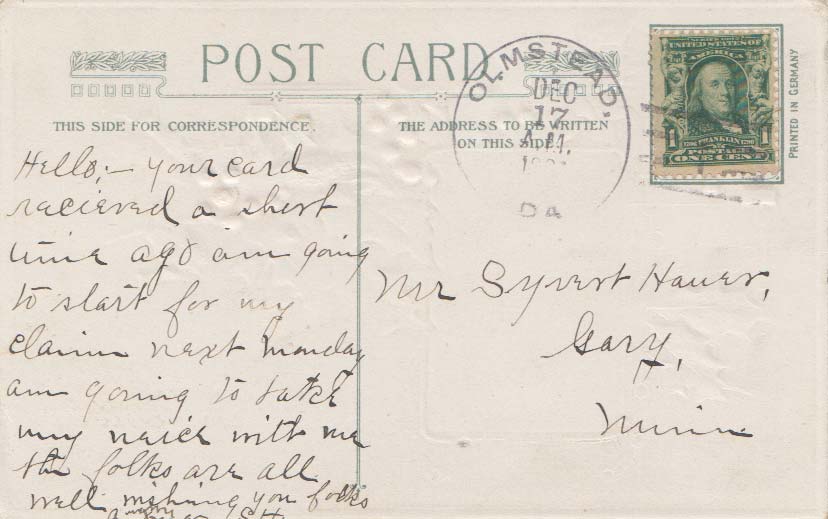 POST CARD
THIS SIDE FOR CORRESPONDENCE.
THE ADDRESS TO BE WRITTEN
ON THIS SIDE.
OLMSTEAD.
DEC
17
A.M.
UNITED STATES OF
AMERICA
1 FRANKLIN 1
POSTAGE
ONE CENT
PRINTED IN GERMANY
Hello;— your card
recieved a short
time ago am going
to start for my
claim next Monday
am going to take
my neice with me
the folks are all
well wishing you folks
a merry
Mr Syvert Hauer,
Gary,
Minn